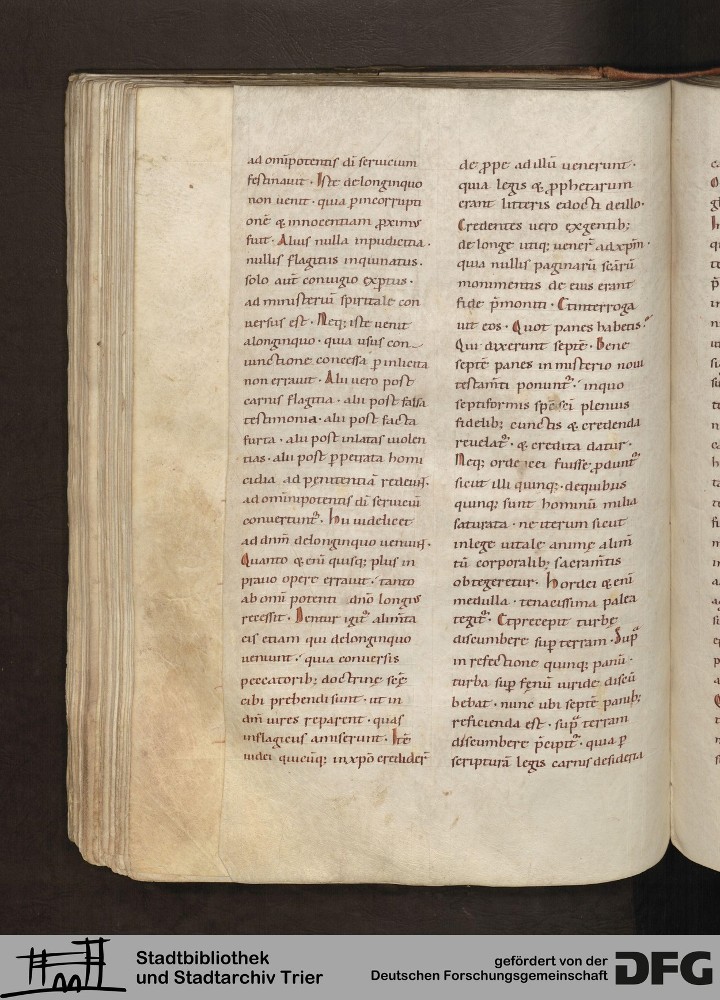 ad omīpotentis dī seruicium
festinauit · Iste de longinquo
non uenit · quia p incorrupti
onē & innocentiam ꝓximus
fuit · Alius nulla inpudicitia ·
nullis flagitiis inquinatus ·
solo aut̄ coniugio exꝑtus ·
ad ministeriū spiritale con
uersus est · Neq; iste uenit
alonginquo · quia usus con
iunctione concessa p inlicita
non errauit · Alii uero post
carnis flagitia · alii post falsa
testimonia · alii post facta
furta · alii post inlatas uiolen
tias · alii post ꝑpetrata homi
cidia ad penitentiā redeuṇ·
ad omīnipotentis dī seruiciū
conuertunt᷑ · Hii uidelicet
ad dnm̄ delonginquo ueniuṇ·
Quanto & enī quisq; plus in
prauo opere errauit · tanto
ab omī potenti dn̄o longius
recessit · Dentur igit᷑ alim̄ta
eis etiam qui delonginquo
ueniunt · quia conuersis
peccatorib; doctrinę scę̄
cibi prebendi sunt · ut in
dm̄ uires reparent · quas
inflagiciis amiserunt · Itē
iudei quicūq; in xp̄o eredider̄
de ꝓpe ad illū uenerunt ·
quia legis & ꝓphetarum
erant litteris edocti de illo ·
Credentes uero ex gentib;
de longe utiq; uener̄ ad xp̄m ·
quia nullis paginarū scārū
monimentis de eius erant
fide p̄moniti · Et interroga
uit eos · Quot panes habetis ?
Qui dixerunt septē · Bene
septē panes in misterio noui
testam̄ti ponunt᷑ · in quo
septiformis spē scī plenius
fidelib; cunctis & credenda
reuelat᷑ · & credita datur ·
Neq; ordeicei fuisse ꝓdunt᷑
sicut illi quinq; · de quibus
quinq; sunt hominū milia
saturata · ne iterum sicut
in lege uitale animę alim̄
tū corporalib; sacram̄tis
obtegeretur · Hordei & enī
medulla · tenacissima palea
tegit᷑ · Et precepit turbę
discumbere sup terram · Sup᷑
in refectione quinq; panū ·
turba sup fęnū uiride discū
bebat · nunc ubi septē panib;
reficienda est · sup᷑ terram
discumbere p̄cipit᷑ · quia p
scripturā legis carnis desideria
Stadtbibliothek
und Stadtarchiv Trier
gefördert von der
Deutschen Forschungsgemeinschaft
DFG